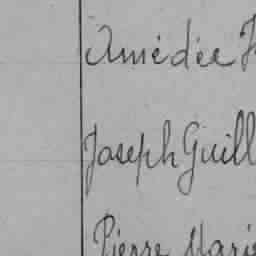 Amédée
Joseph Guill
Pierre Marie